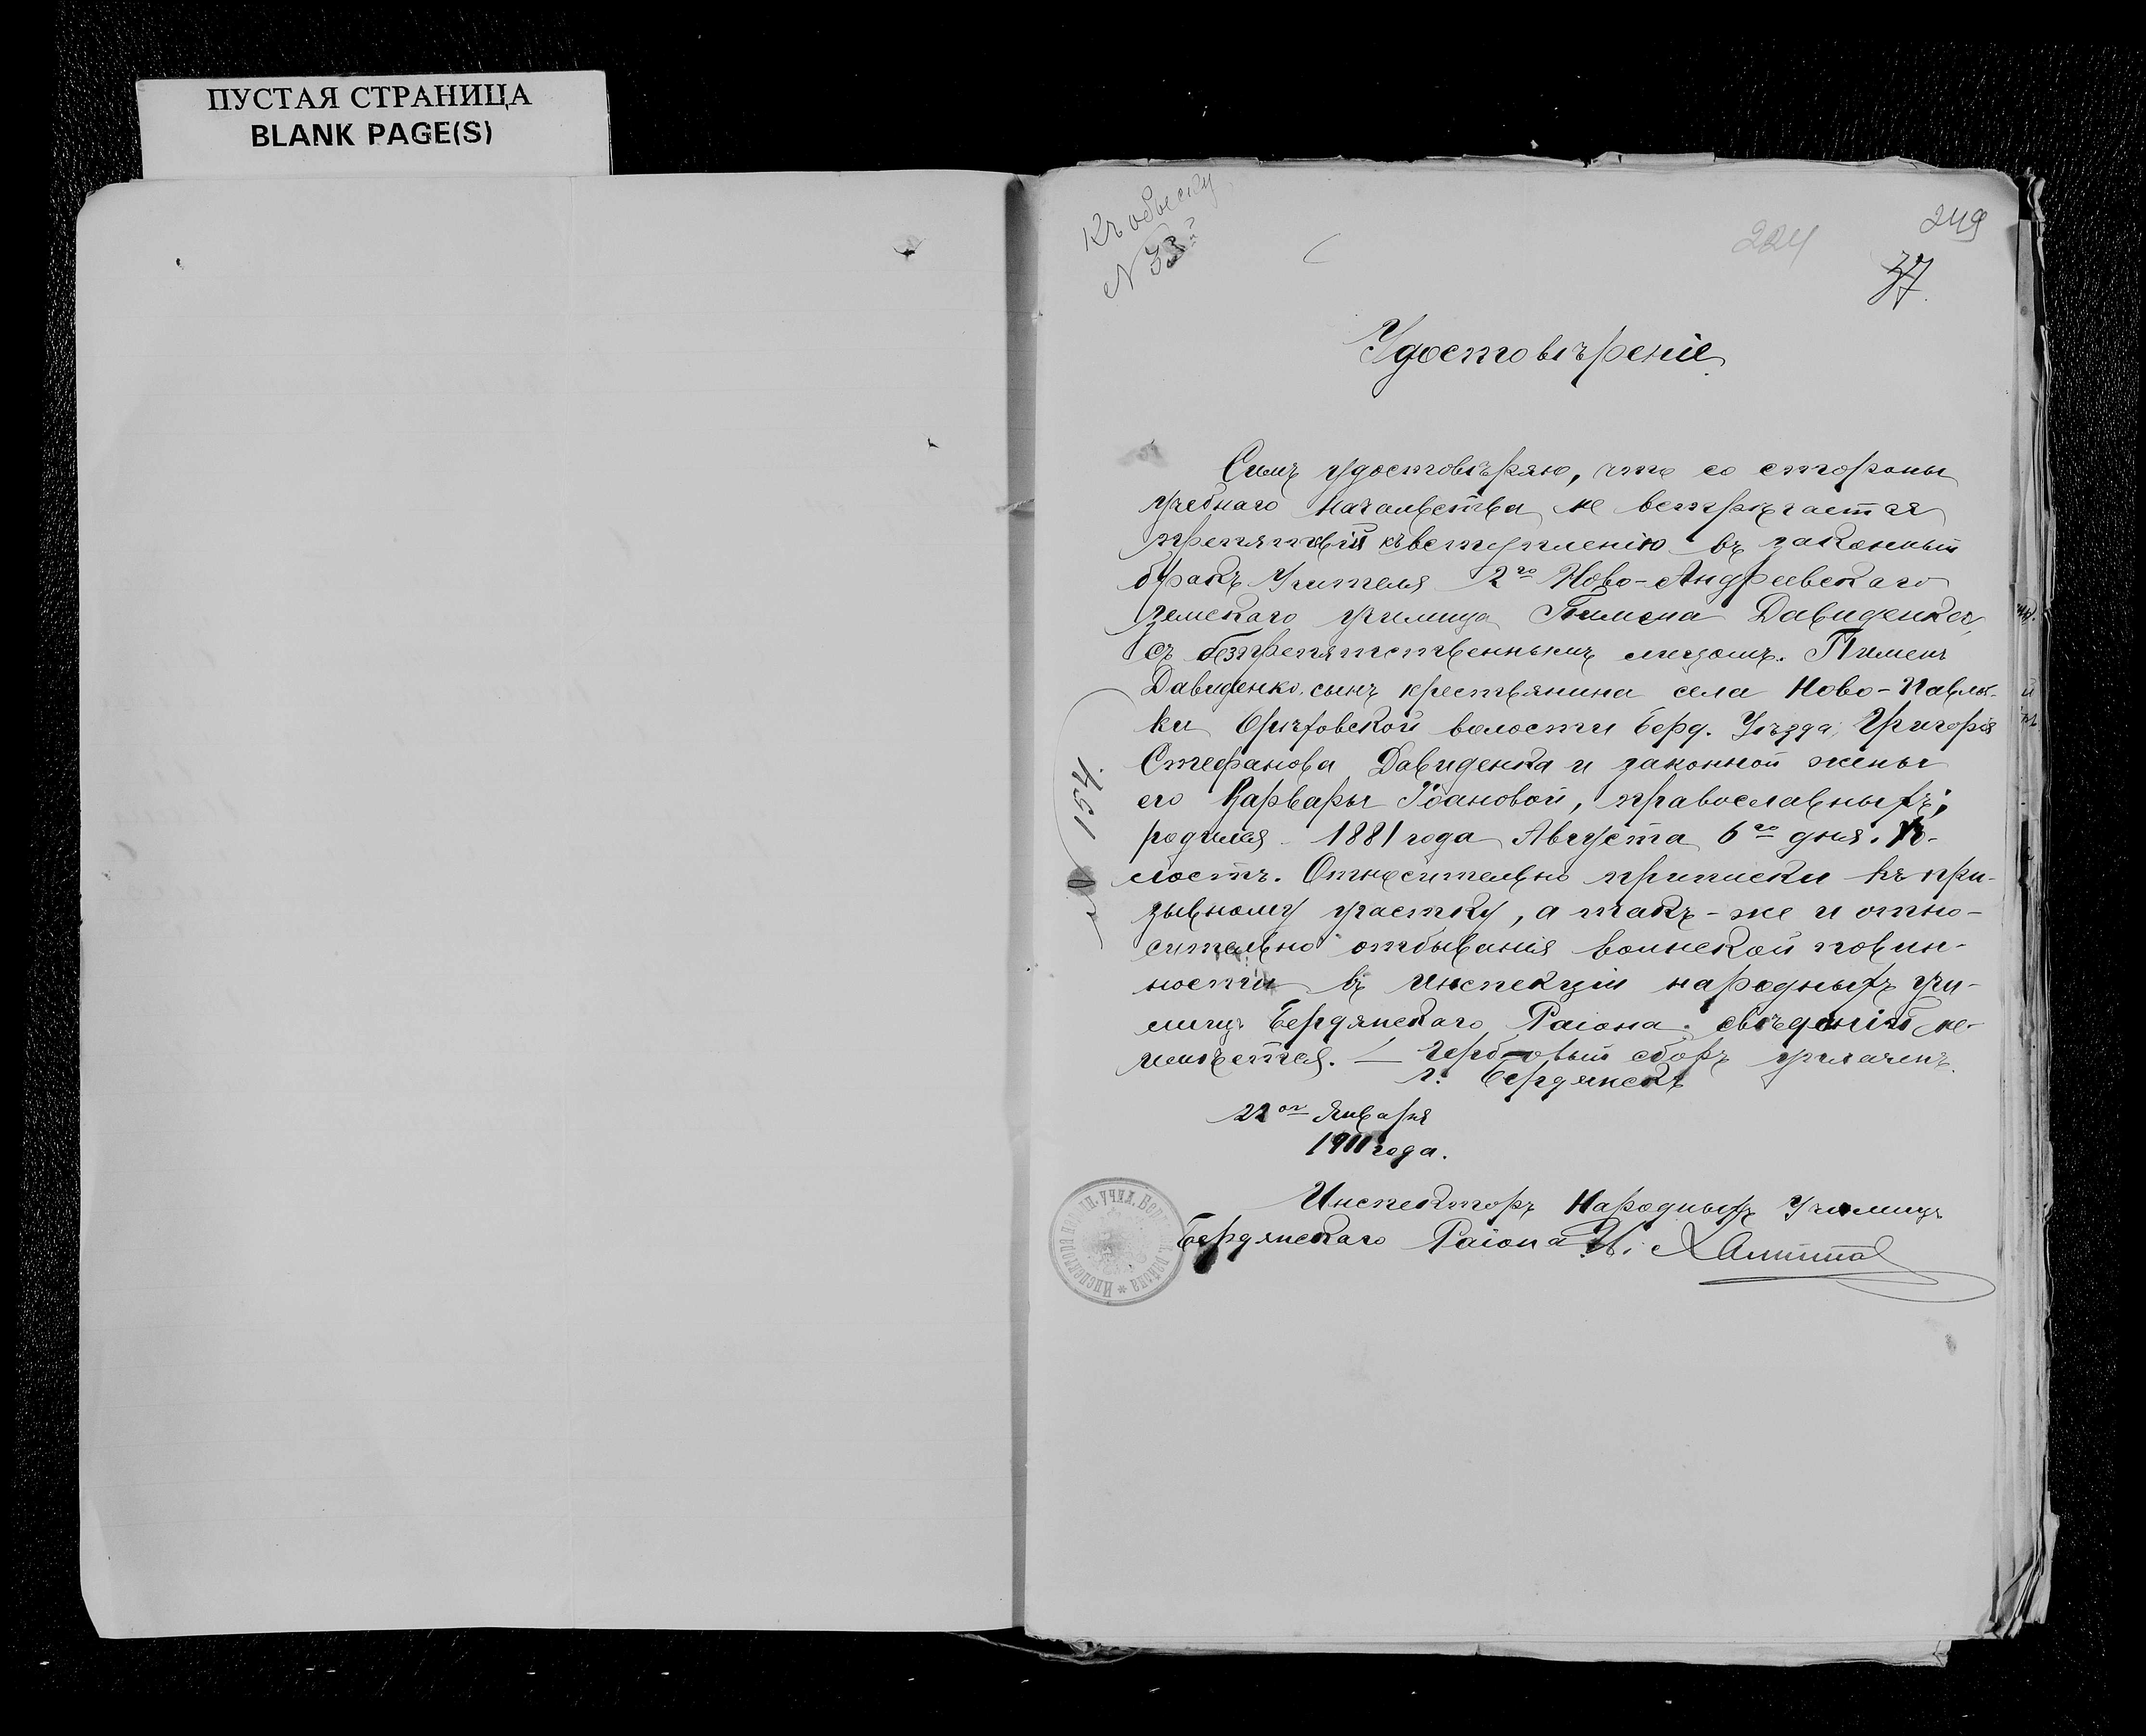 ПУСТАЯ СТРАНИЦА
BLANK PAGE(S)
Къ обыску
N 33
249
224
37
Удостовѣреніе
Симъ удостовѣряю, что со стороны
учебнаго начальства не встрѣчается
препятствій къ вступленію въ законный
бракъ Учителя 2го Ново-Андреевскаго
земскаго училища Пимена Давиденка,
съ безпрепятственнымъ лицомъ. Пименъ
Давиденко, сынъ крестьянина села Ново-Павлов-
ки волости Берд. Уѣзда, Григорія
Стефанова Давиденка и законной жены
его Варвары Іоановой, православныхъ;
родился 1881 года Августа 6го дня. Хо-
лостъ. Относительно приписки къ при-
зывному участку, а такъ-же и отно-
сительно отбыванія воинской повин-
ности въ Инспекціи народныхъ учи-
лищъ Бердянскаго Раіона свѣденій не-
имѣется. — Гербовый сборъ уплаченъ.
г. Бердянскъ
22ого Января
1911 года.
№ 154
Инспекторъ Народныхъ Училищъ
Бердянскаго Раіона